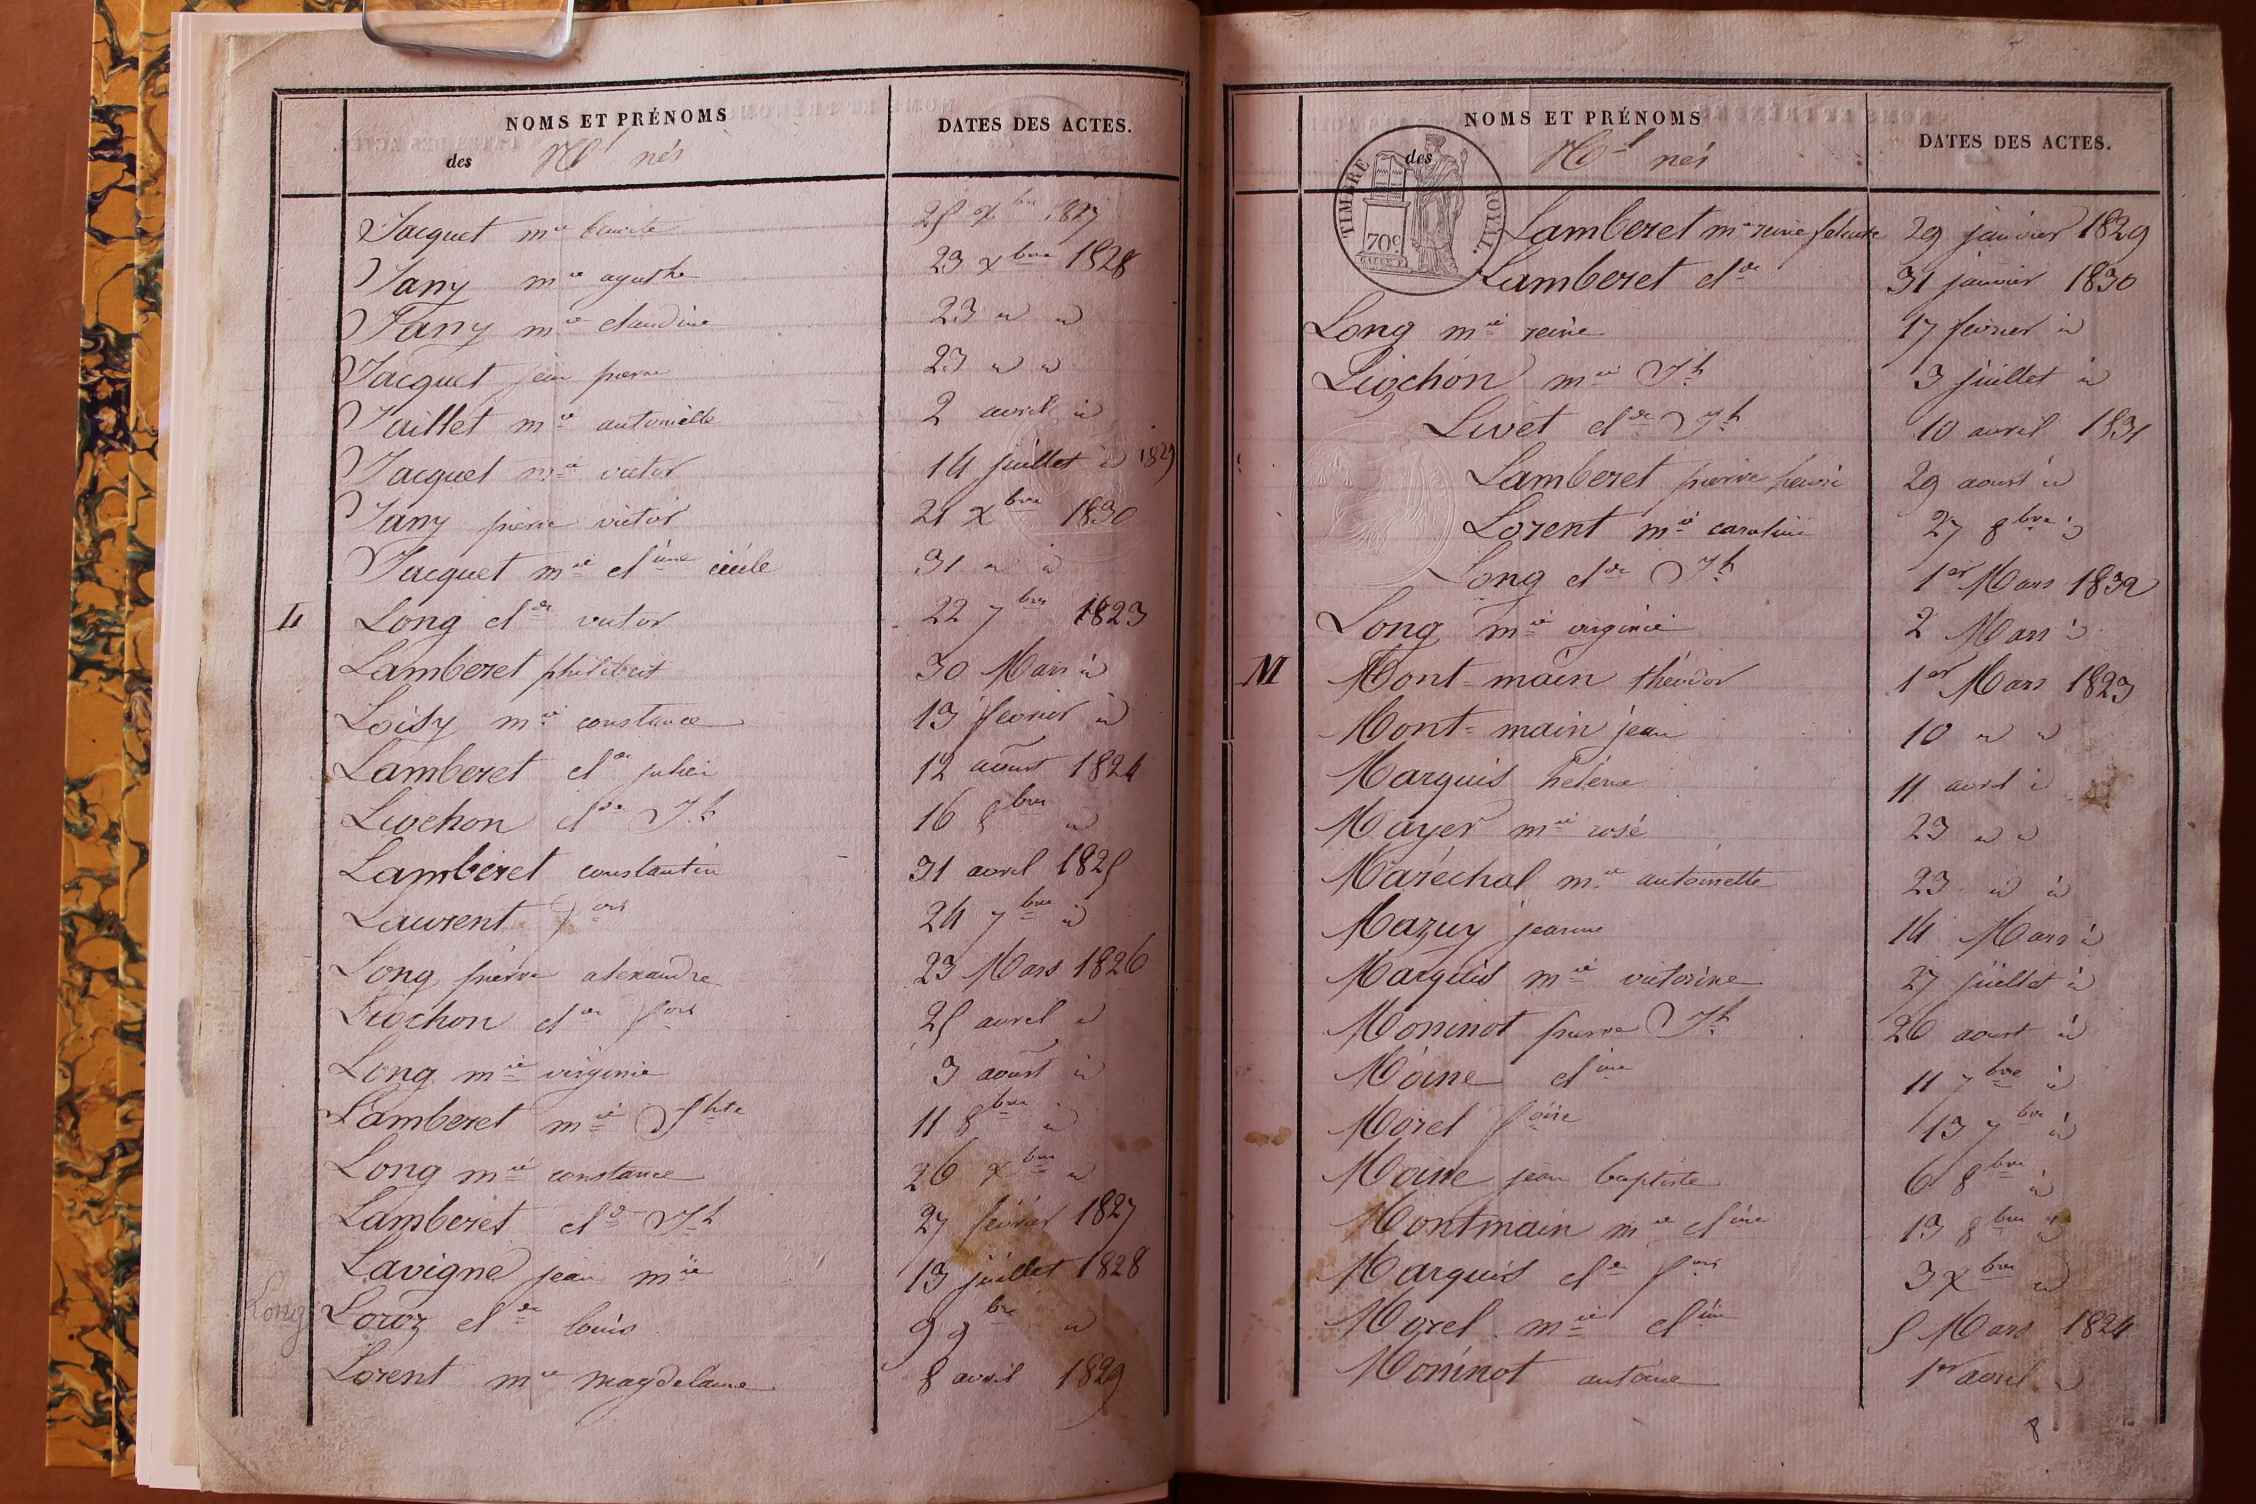 NOMS ET PRÉNOMS
DATES DES ACTES.
des nés
Jacquet mie benoite 25 xbre 1827
Jany mie agathe 23 xbre 1828
Jany mie claudine 23 " "
Jacquet jean pierre 23 " "
Jaillet mie antoinette 2 avril id
Jacquet mie victor 14 juillet id 1829
Jany pierre victor 21 xbre 1830
Jacquet mie cline cécile 31 " id
L Long clde victor 22 7bre 1823
Lamberet philibert 30 Mars id
Loisy mie constance 13 fevrier id
Lamberet clde julien 12 aoust 1824
Livchon clde Jh 16 8bre id
Lamberet constantin 31 avril 1825
Laurent fois 24 7bre id
Long pierre alexandre 23 Mars 1826
Liochon clde fois 25 avril id
Long mie virginie 3 aoust id
Lamberet mie Jhte 11 8bre id
Long mie constance 26 xbre id
Lamberet clde Jh 27 février 1827
Lavigne jean mie 13 juillet 1828
Long Loroz clde louis 9 9bre id
Lorent mie magdelaine 8 avril 1829
NOMS ET PRÉNOMS
DATES DES ACTES.
des nés
TIMBRE ROYAL
70c
Lamberet mie reine 29 janvier 1829
Lamberet clde 31 janvier 1830
Long mie reine 17 fevrier id
Liochon mie Jh 3 juillet id
Livet clde Jh 10 avril 1831
Lamberet pierre henri 29 aoust id
Lorent mie caroline 27 8bre id
Long clde Jh 1er Mars 1832
Long mie virginie 2 Mars id
M Mont-main théodor 1er Mars 1823
Mont-main jean 10 " "
Marquis helene 11 avril id
Mayer mie rose 23 " id
Maréchal mie antoinette 23 id id
Mazuy jeanne 14 Mars id
Marquis mie victorine 27 juillet id
Moninot pierre Jh 26 aoust id
Moine cline 11 7bre id
Morel foise 13 7bre id
Moine jean baptiste 6 8bre id
Montmain mie cline 13 8bre id
Marquis clde fois 3 xbre id
Morel mie cline 5 Mars 1824
Moninot antoine 1er avril id
8